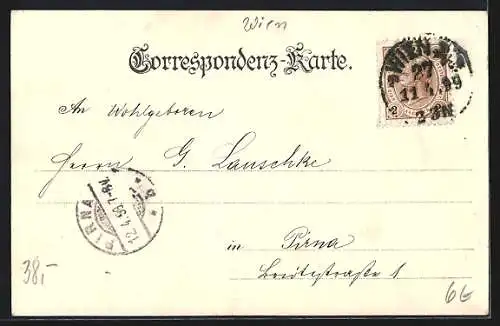 Wien
Correspondenz-Karte.
WIEN
27
11.4.99
2-3N
2
An Wohlgeboren
Herrn G. Lauschke
PIRNA
12.4.99.7-8V.
* b *
in Pirna
Breitestraße 1
38,-
6E